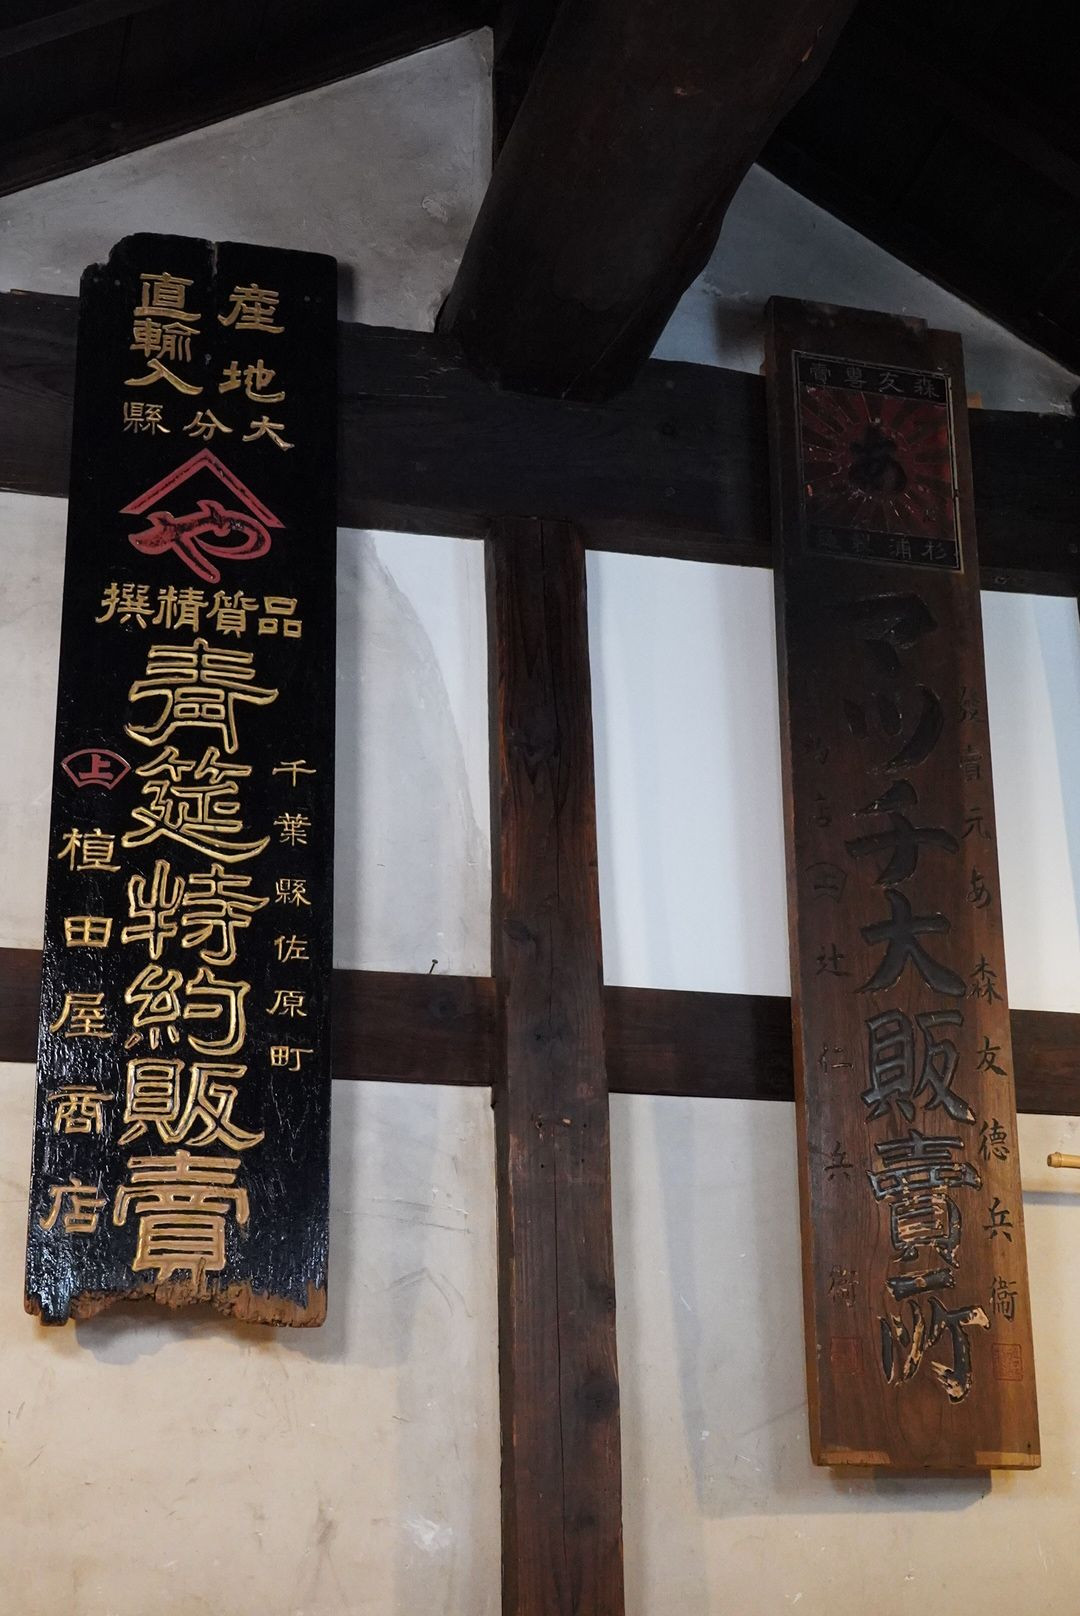 産地
直輸入
大分縣
や
品質精撰
青筵特約販賣
千葉縣佐原町
上
植田屋商店
森友
あ
杉浦製
マツチ大販賣所
發賣元あ森友德兵衞
辻仁兵衛